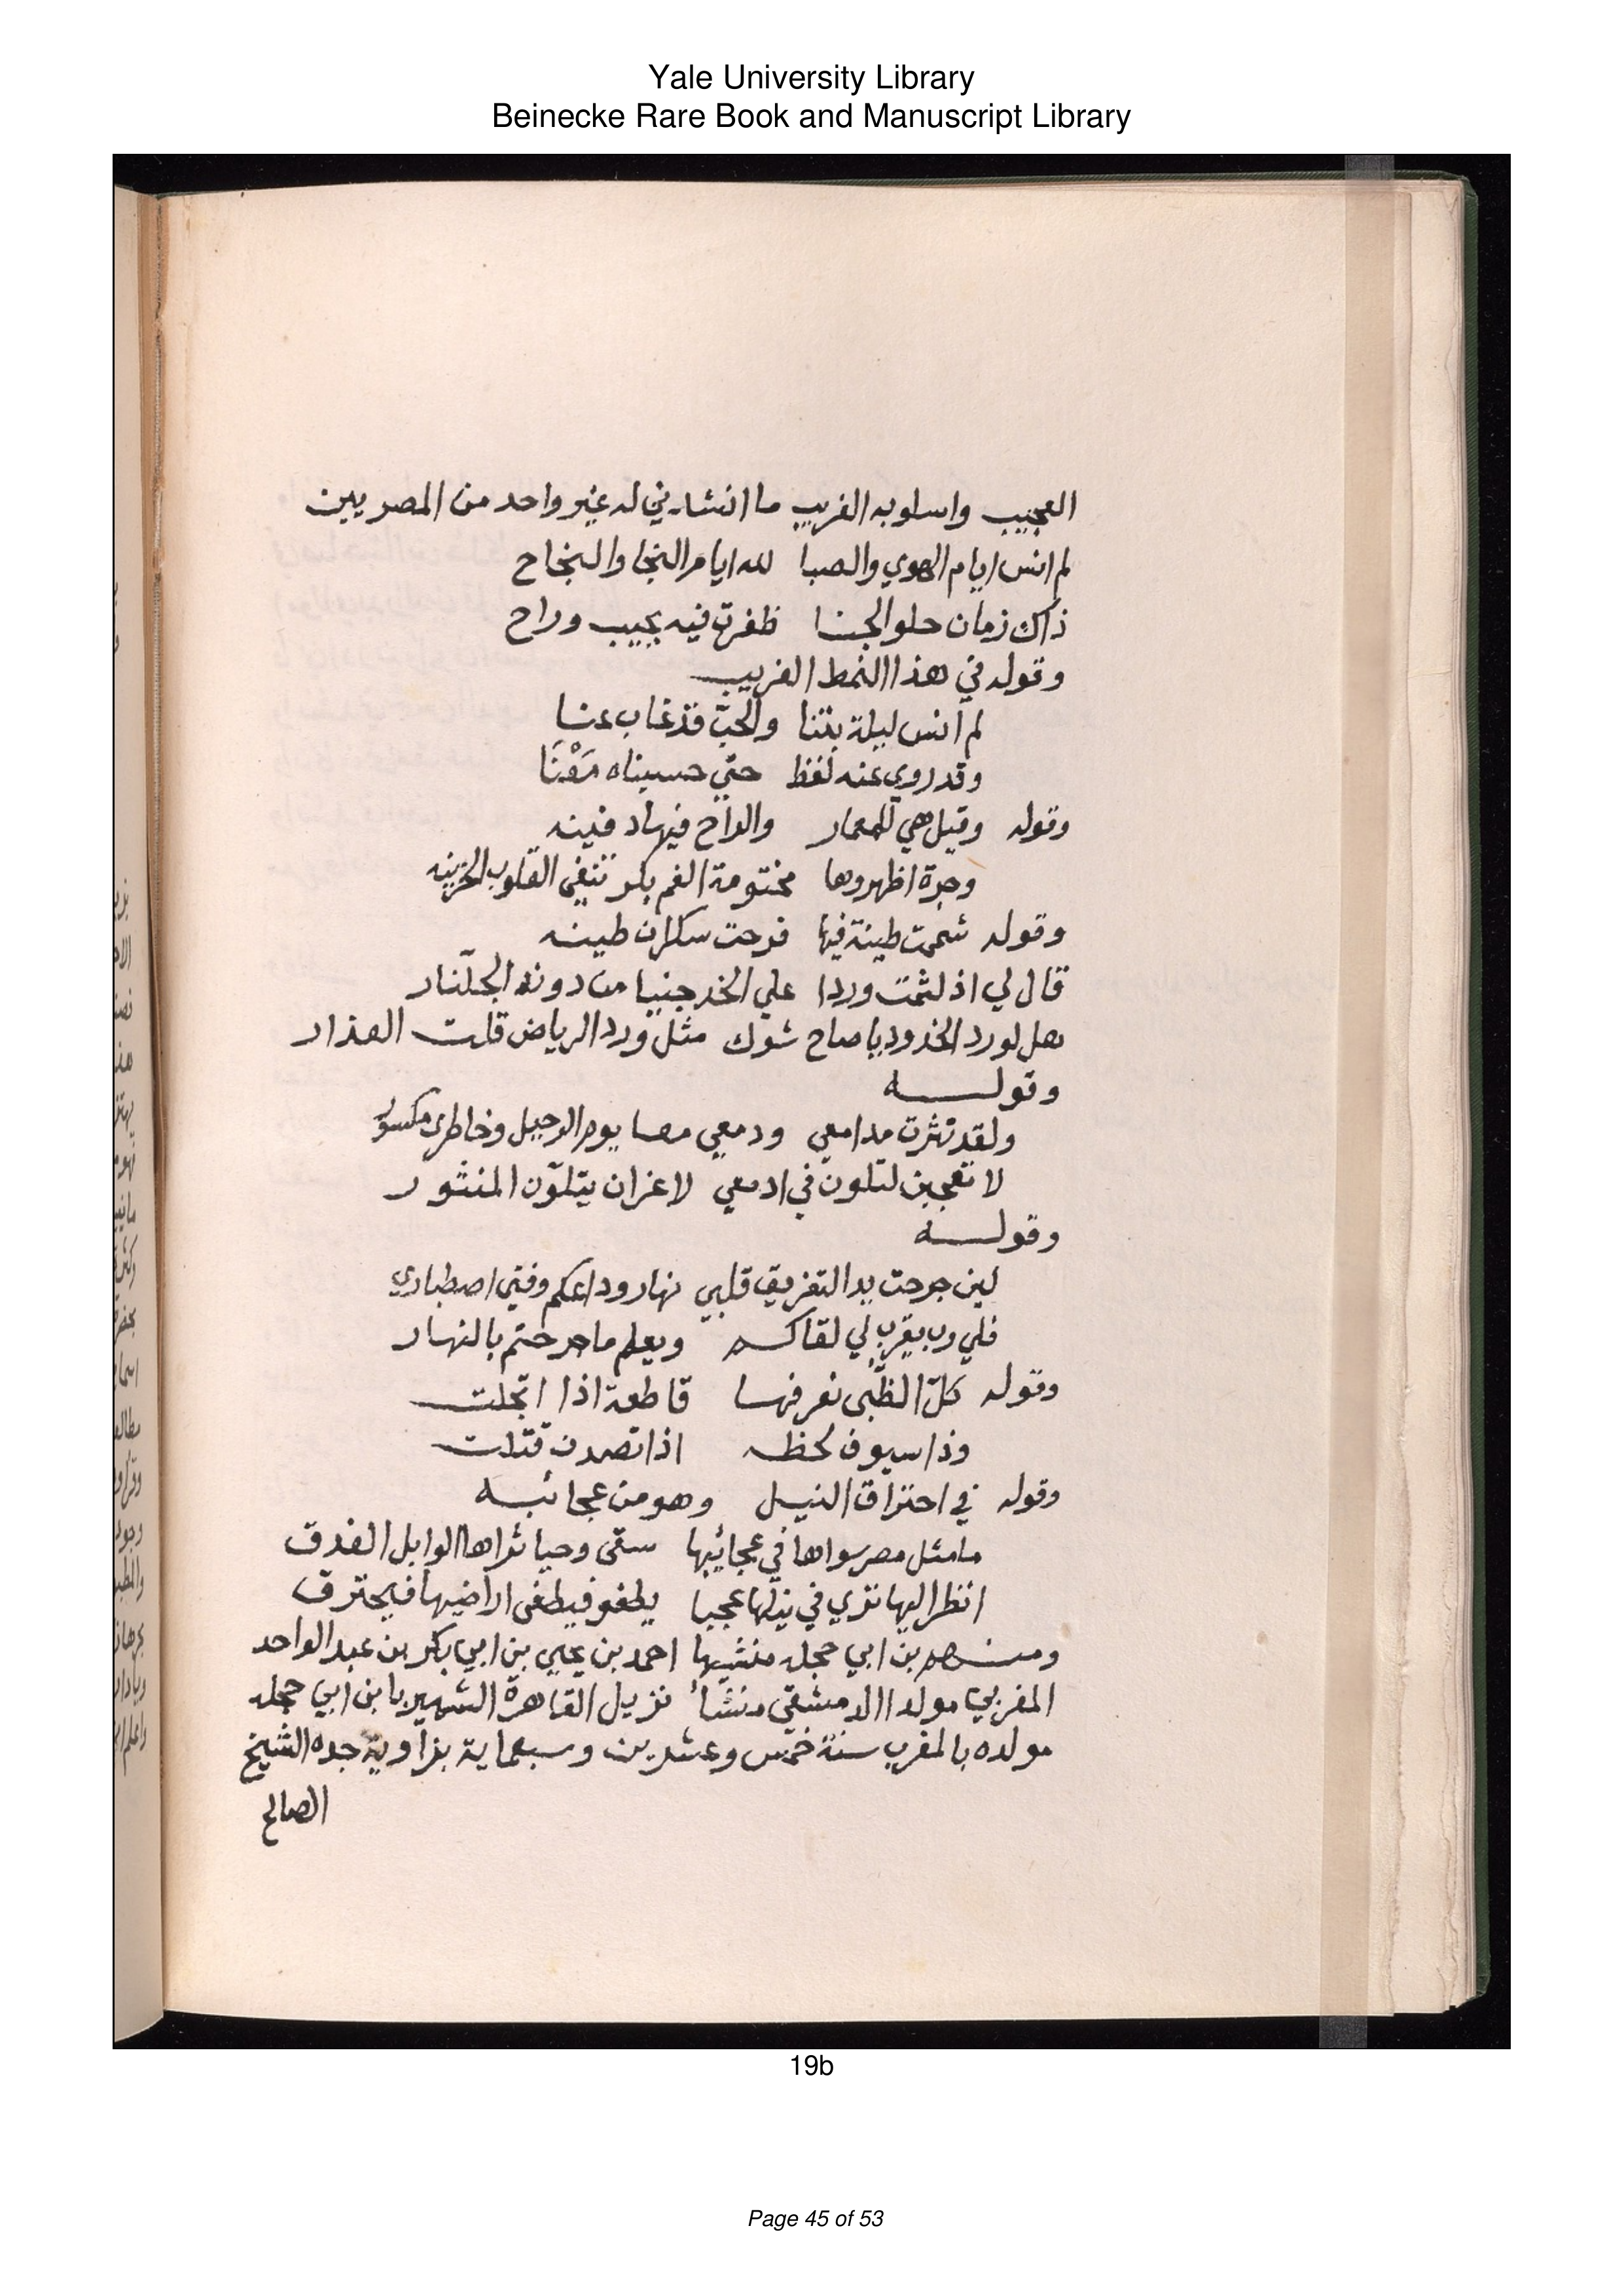 Yale University Library
Beinecke Rare Book and Manuscript Library
العجيب واسلوبه الغريب ما انشدني له غير واحد من المصريين
لم انس ايام الهوي والصبا لله ايام النجا والنجاح
ذاك زمان حلو الجنا ظفرت فيه بحبيب وراح
وقوله في هذا النمط الغريب
لم انس ليلة بتنا والحبّ قد غاب عنا
وقد روي عنه لفظ حتي حسبناه مَعْنَا
وقوله وقيل هي للمعمار والراح فيها دفينه
وجرة اظهروها مختومة الفم بكر تنفي القلوب الحزينه
وقوله شممت طينة فيها فرحت سكران طينه
قال لي اذ لثمت وردا علي الخد جنيا من دونه الجلّنار
هل لورد الخدود يا صاح شوك مثل ورد الرياض قلت العذار
وقولـــه
ولقد نثرت مدامعي ودمعي معا يوم الرحيل وخاطري مكسور
لا تعجبن لتلون في ادمعي لا غران يتلوّن المنثور
وقولـــه
لين جرحت يد التفريق قلبي نهار وداعكم وفني اصطباري
فلي رب يقرب لي لقاكم ويعلم ما جرحتم بالنهار
وقوله كلّ الظّبى نعرفها قاطعة اذا انجلت
وذا سيوف لحظه اذا تصدت قتلت
وقوله في احتراق النيل وهو من عجائبه
ما مثل مصر سواها في عجائبها سقى وحيا ثراها الوابل الغدق
انظر اليها تري في نيلها عجبا يطفو فيطغى اراضيها فيحترق
ومنـهم بن ابي حجله منشيها احمد بن يحيي بن ابي بكر بن عبد الواحد
المغربي مولدا الدمشقي منشأ نزيل القاهرة الشهير بابن ابي حجله
مولده بالمغرب سنة خمس وعشرين وسبعماية بزاوية جده الشيخ
الصالح
19b
Page 45 of 53